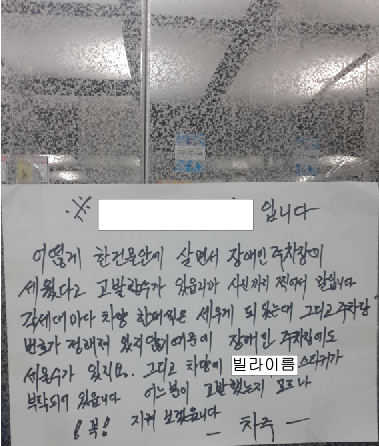 ※ 입니다
어떻게 한건물안에 살면서 장애인 주차장에
세웠다고 고발할수가 있읍니까 사진까지 찍어서 말입니다
각세대마다 차량 한대씩은 세우게 되있는데 그리고 주차장
번호가 정해져 있지않기때문에 장애인 주차장에도
세울수가 있지요. 그리고 차량에 빌라이름 스티커가
부착되어 있읍니다 어느분이 고발했는지 모르나
꼭! 지켜 보겠읍니다
- 차주 -